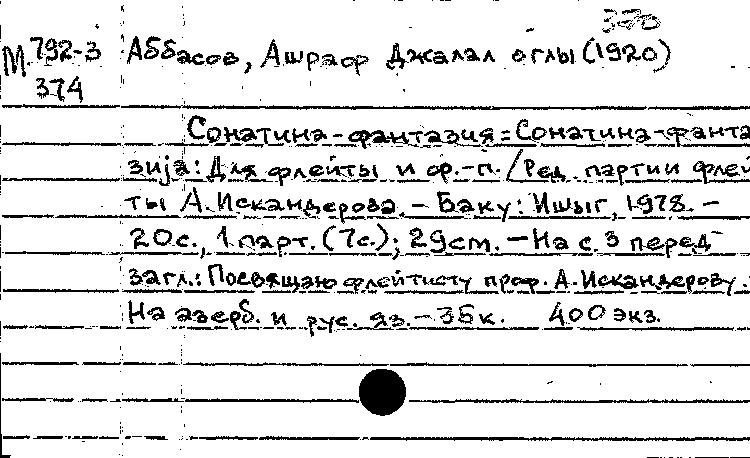 370
М 792-3 Аббасов, Ашраф Джалал оглы (1920)
374
Сонатина-фантазия = Сонатина-фанта
зиjа: Для флейты и ф.-п. / Ред. партии флей
ты А. Искандерова. – Баку: Ишыг, 1978. –
20с., 1 парт. (7с.); 29см. – На с. 3 перед
загл.: Посвящаю флейтисту проф. А. Искандерову. –
На азерб. и рус. яз. – 35 к. 400 экз.